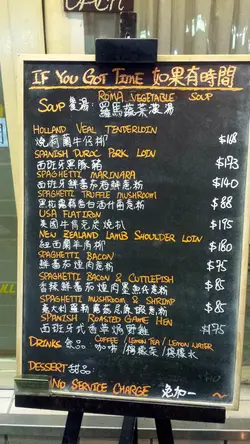 IF YOU GOT TIME 如果有時間
ROMA VEGETABLE SOUP
SOUP 湯: 羅馬蔬菜濃湯
HOLLAND VEAL TENDERLOIN
燒荷蘭牛仔柳 $168
SPANISH DUROC PORK LOIN
西班牙黑豚 $193
SPAGHETTI MARINARA
西班牙鮮番茄海鮮意粉 $140
SPAGHETTI TRUFFLE MUSHROOM
黑松露蘑菇白汁意粉 $68
USA FLATIRON
美國牛肩扒 $195
NEW ZEALAND LAMB SHOULDER LOIN
紐西蘭羊 $180
SPAGHETTI BACON
鮮番茄煙肉意粉 $75
SPAGHETTI BACON & CUTTLEFISH
香辣鮮番茄煙肉墨魚意粉 $85
SPAGHETTI MUSHROOM & SHRIMP
意大利蘑菇蝦意粉 $85
SPANISH ROASTED GAME HEN
西班牙式香草焗野雞 $175
DRINKS 飲品 COFFEE / LEMON TEA / LEMON WATER
咖啡 / 檸檬茶 / 檸檬水
DESSERT 甜品:
NO SERVICE CHARGE 免加一 ~